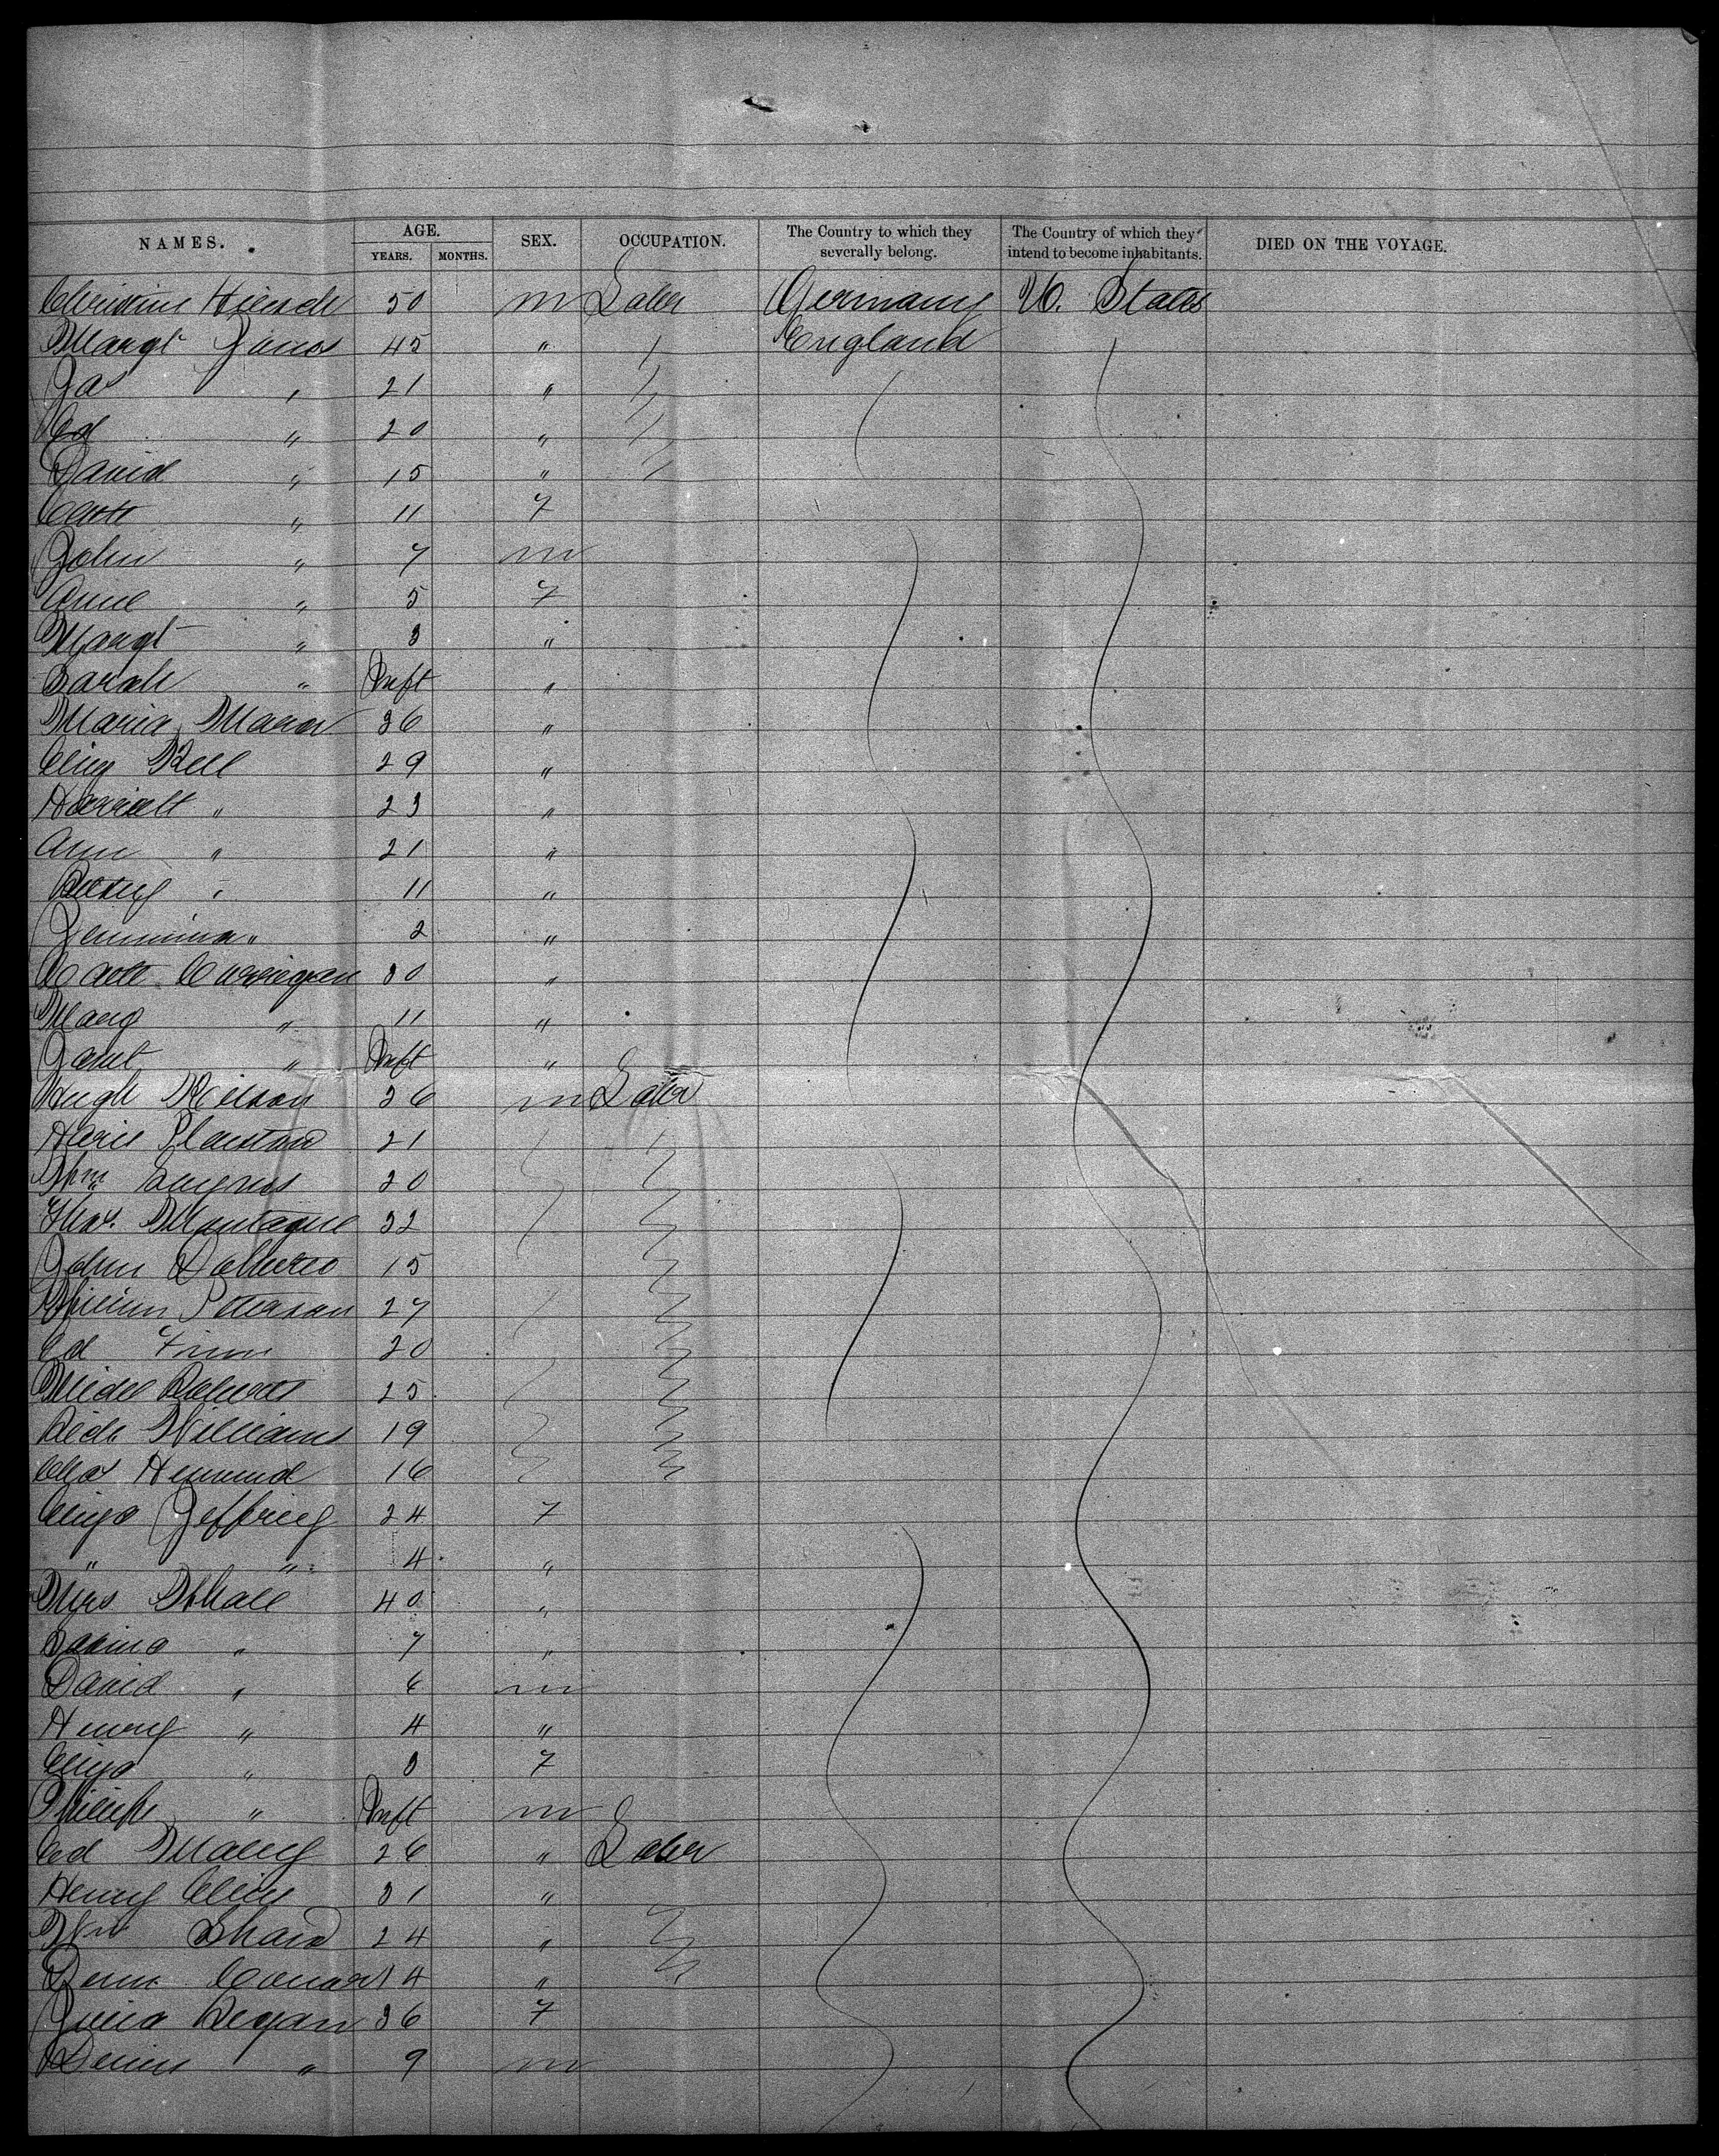 NAMES. AGE. SEX. OCCUPATION. The Country to which they severally belong. The Country of which they intend to become inhabitants. DIED ON THE VOYAGE.
YEARS. MONTHS.
50 m Labr Germany U. States
Margt Jones 45 " England
Jas " 21 "
Ed " 20 "
David " 15 "
Cath " 11 F
John " 7 m
Anne " 5 F
Margt " 3 "
Sarah " Inft "
Maria 36 "
Eliz Bell 29 "
Harriett " 23 "
Ann " 21 "
Betsey " 11 "
Jemmima " 2 "
Cath Corrigan 30 "
Marg " 11 "
Janet " Inft "
Hugh Wilson 26 m Labr
21
Wm 20
Thos. Montague 32
John 15
William Peterson 27
Ed Finn 20
Michl Roberts 25
Richd Williams 19
Chas 16
Eliza Jeffrey 24 F
" " 4 "
Mrs 40 "
" 7 "
David " 6 m
Henry " 4 "
Eliza " 3 F
Phillip " Inft m
Ed 26 " Labr
Henry 31 "
Wm Shaw 24 "
14 "
Julia Regan 36 F
Denis " 9 m